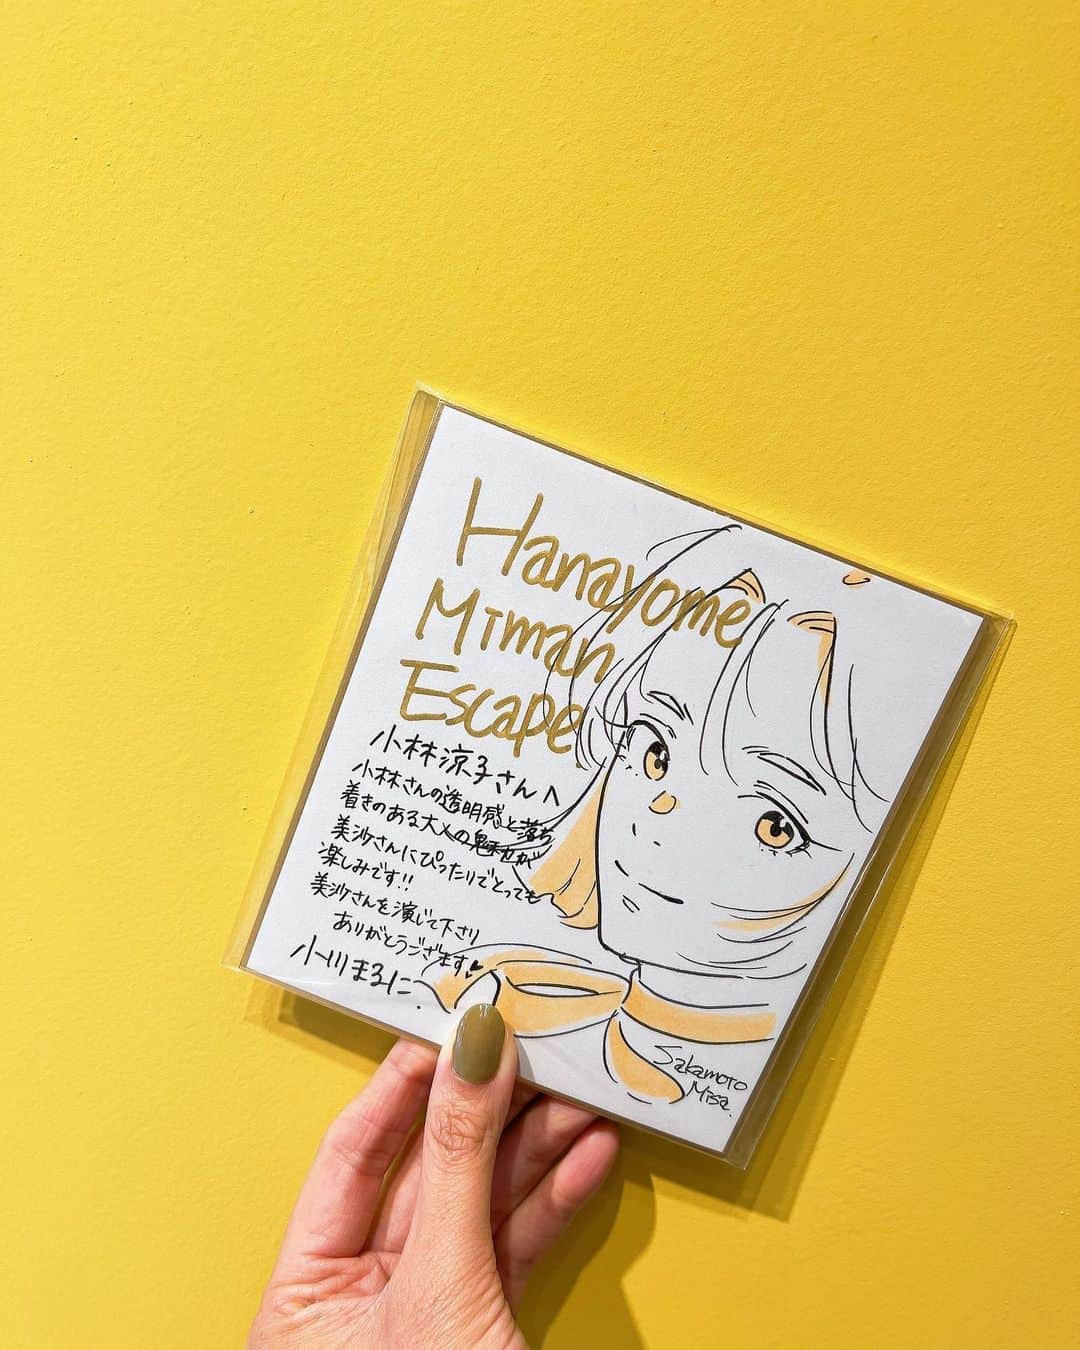 Hanayome
Miman
Escape.
小林涼子さんへ
小林さんの透明感と落ち
着きのある大人の魅力が
美沙さんにぴったりでとっても
楽しみです!!
美沙さんを演じて下さり
ありがとうござます♥
小川まるに.
Sakamoto
Misa.